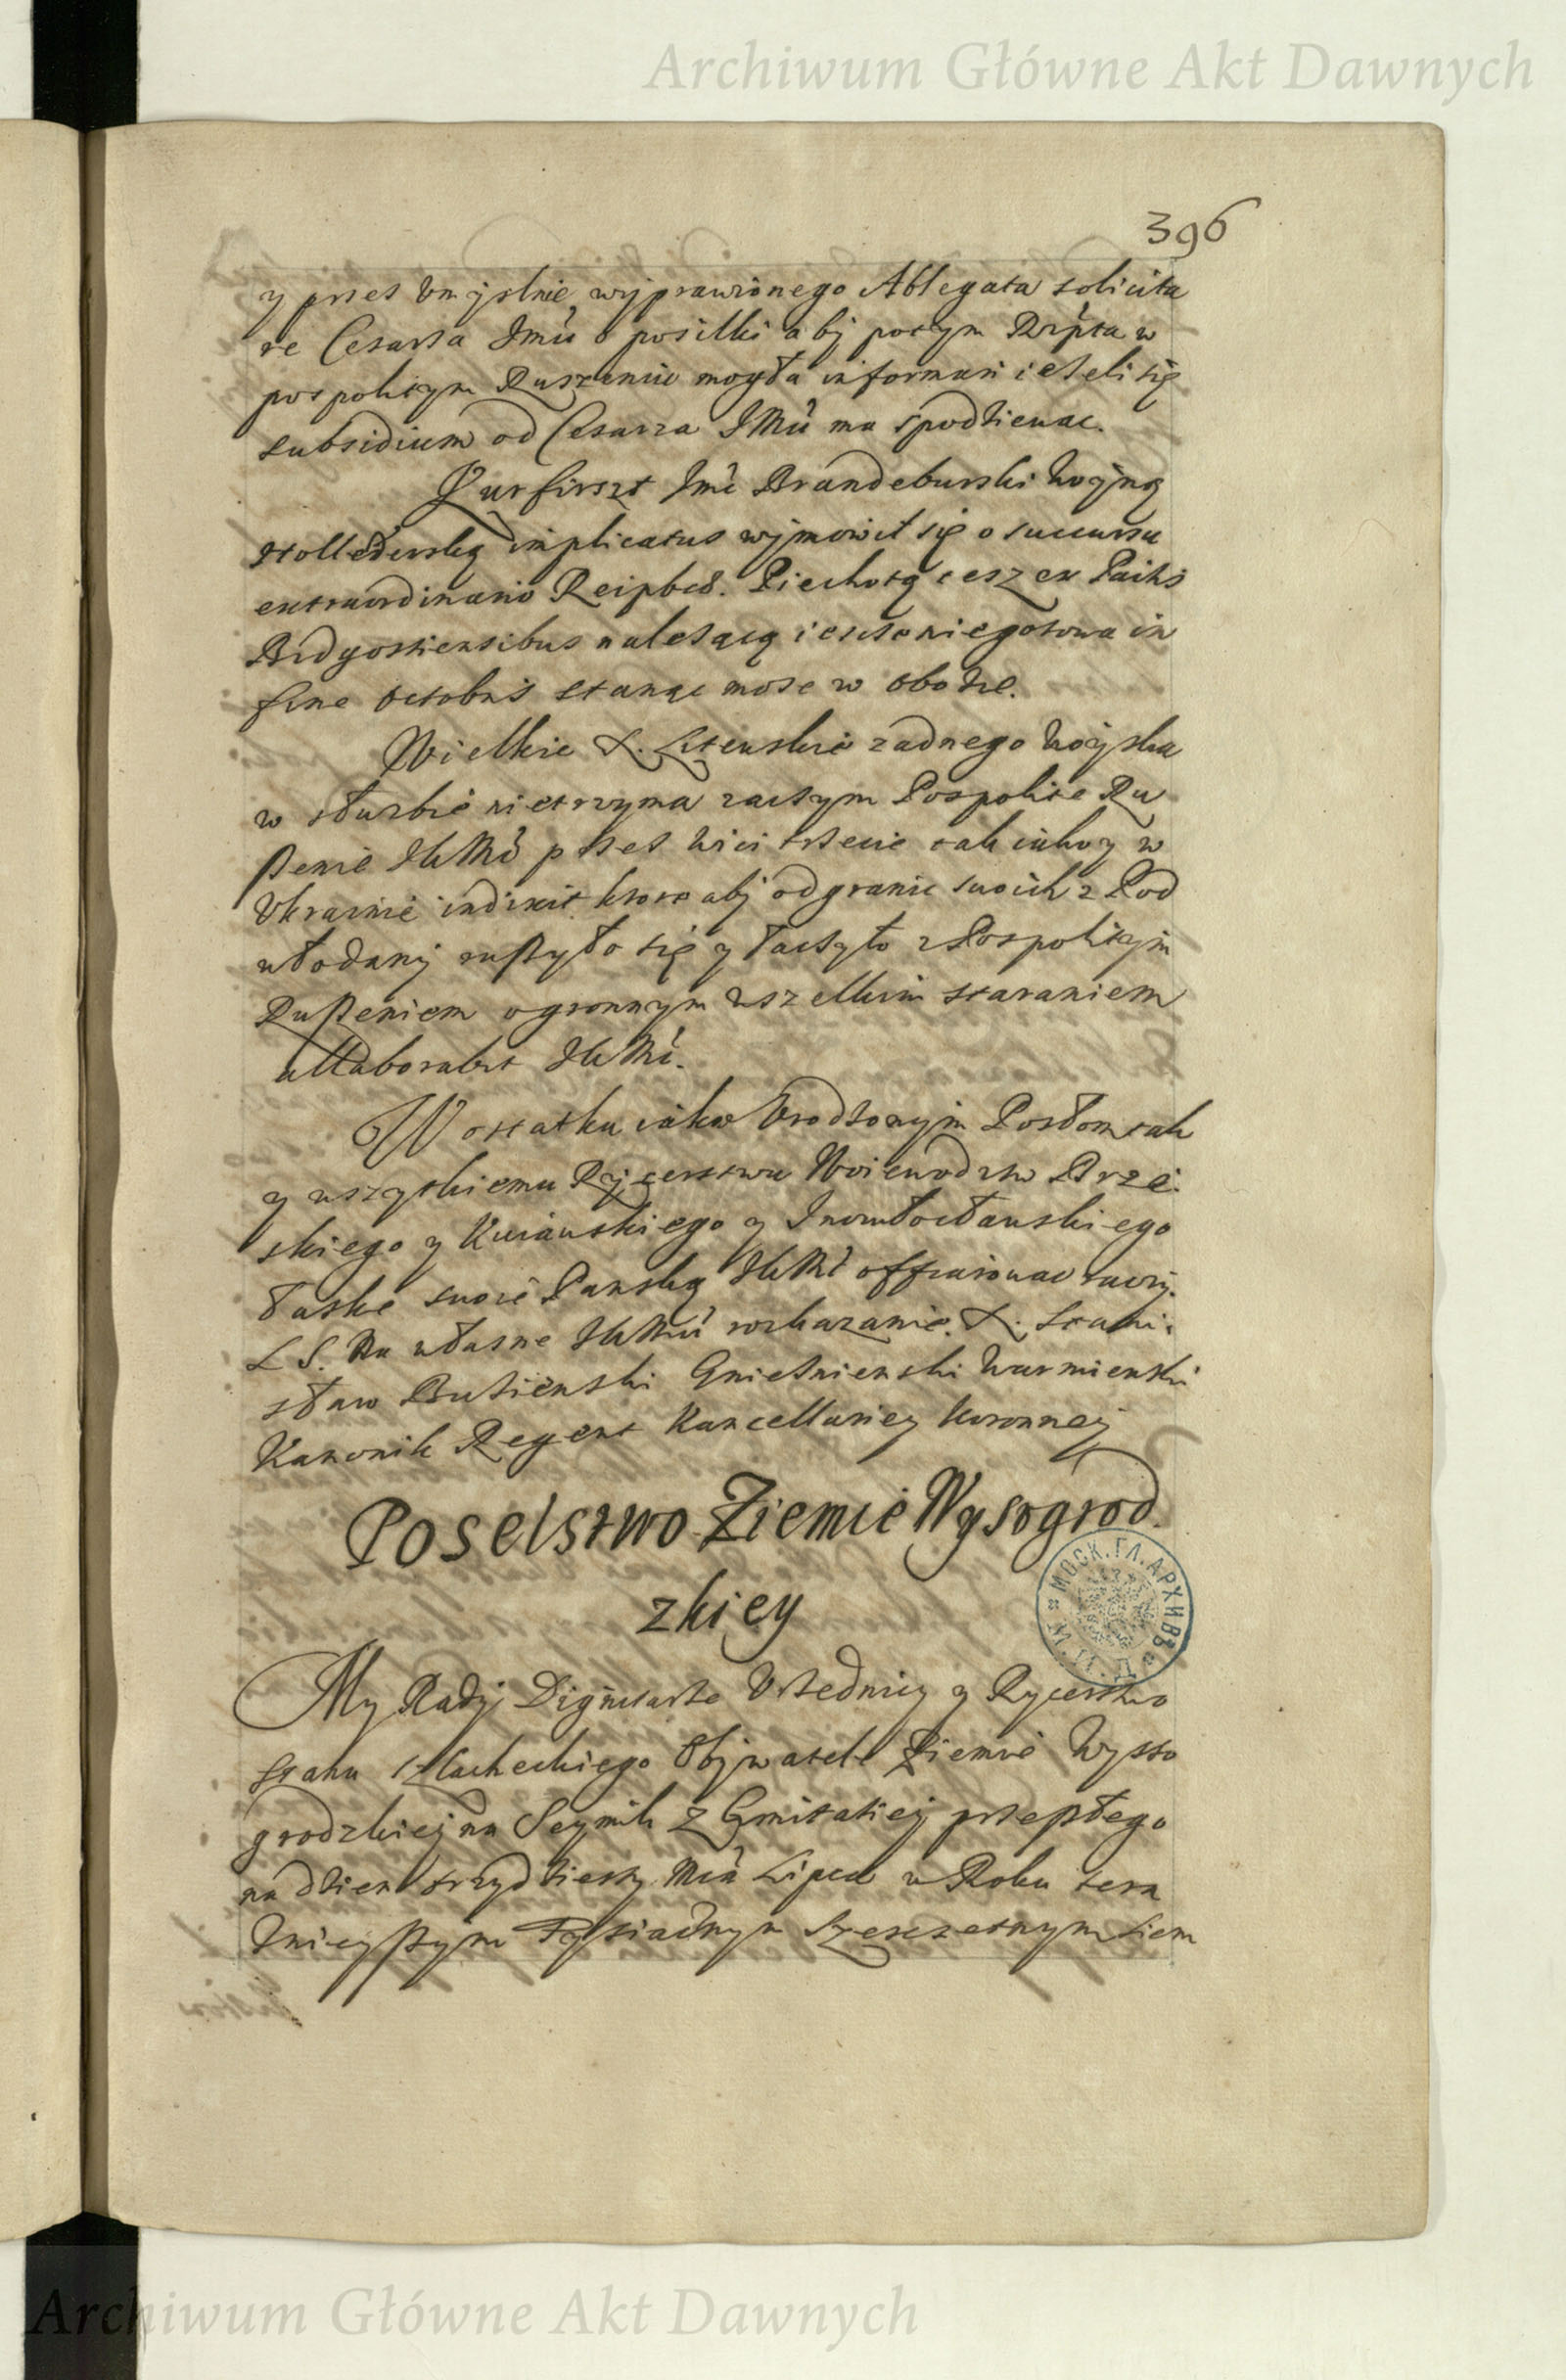 Archiwum Główne Akt Dawnych
396
y przez vmyslnie wyprawionego Ablegata solicita
re Cesarza Jmci o posilki aby potym Rzpta w
pospolitym Ruszeniu mogła informari ieżeli się
subsidium od Cesarza JMci ma spodziewac.
Kurfirszt Jmc Brandeburski Woyną
Hollederską implicatus wymowił się o succursu
extraordinario Reipbcae. Piechotą z ex Pactis
Bidgostiensibus należącą ieszcze niegotowa in
fine Octobris stanąc może w obozie.
Wielkie X. Litewskie zadnego Woyska
w słuzbie nietrzyma zaczym Pospolite Ru
szenie JKMc przez Wici trzecie tak iako y w
Vkrainie indixit ktore aby od granic swoich z Pod
włodawy ruszyło się y łączyło z Pospolitym
Ruszeniem ogromnym wszelkim staraniem
allaborabit JKMc.
W ostatku iako Vrodzonym Posłom tak
y wszytkiemu Rycerstwu Woiewodztw Brze
skiego y Kuiawskiego y Inowłocławskiego
łaske swoię Panską JKMc offiarowac raczy.
L S. Na własne JKMci roskazanie. X. Stani
sław Buzienski Gnieznienski Warmienski
Kanonik Regent Kancellariey Koronney
Poselstwo Ziemie Wysogrod
zkiey
МОСК. ГЛ. АРХИВЪ М. И. Д.
My Rady Dignitarze Vrzednicy y Rycerstwo
Stanu Szlacheckiego Obywatele Ziemie Wyszo
grodzkiey na Seymik z Limitatiey przeszłego
na dzien trzydziesty Mca Lipca w Roku tera
znieyszym Tysiącnym Szescsetnym Siem
Archiwum Główne Akt Dawnych